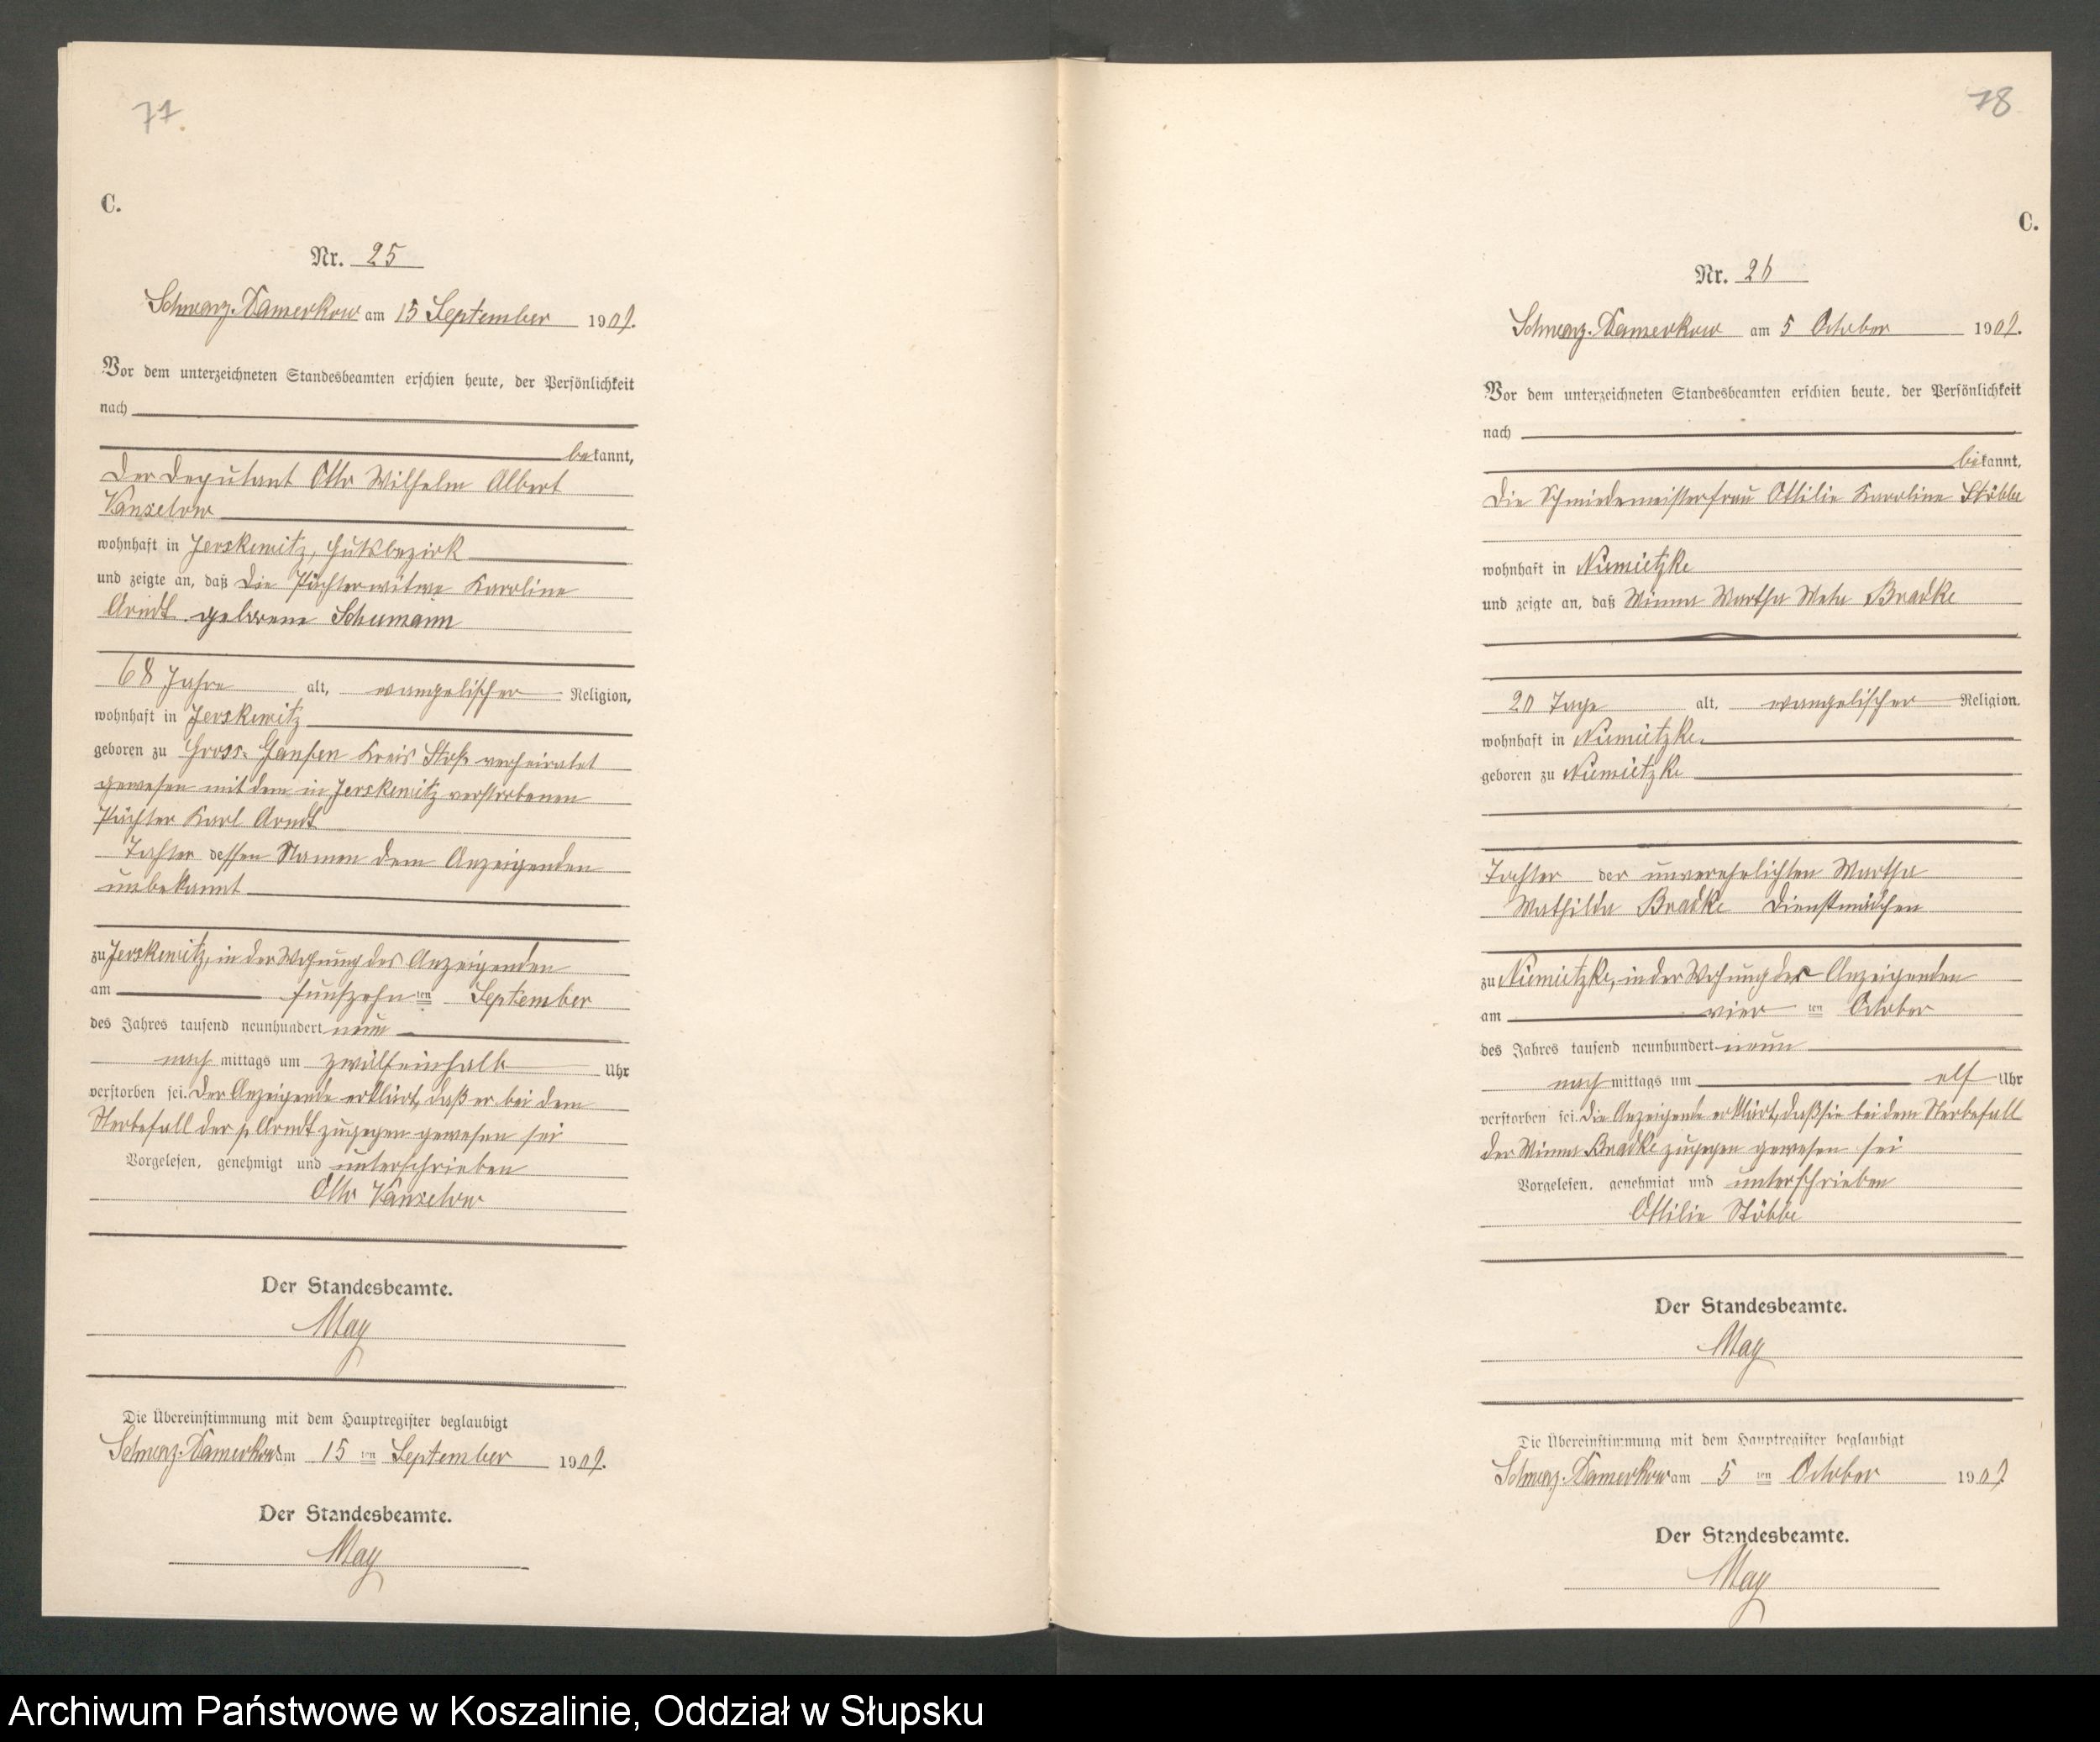 77.
C.
Nr. 25
Schwarz-Damerkow am 15 September 1909.
Vor dem unterzeichneten Standesbeamten erschien heute, der Persönlichkeit
nach
bekannt,
Der Deputant Otto Wilhelm Albert
Vanselow
wohnhaft in Jerskewitz, Gutsbezirk
und zeigte an, daß die Pächterwitwe Karoline
Arndt geborene Schumann
68 Jahre alt, evangelischer Religion,
wohnhaft in Jerskewitz
geboren zu Gross-Gansen Kreis Stolp verheiratet
gewesen mit dem in Jerskewitz verstorbenen
Pächter Karl Arndt
Tochter dessen Namen dem Anzeigenden
unbekannt
zu Jerskewitz, in der Wohnung des Anzeigenden
am fünfzehnten September
des Jahres tausend neunhundert neun
nachmittags um zwölfeinhalb Uhr
verstorben sei. Der Anzeigende erklärt, daß er bei dem
Sterbefall der p. Arndt zugegen gewesen sei
Vorgelesen, genehmigt und unterschrieben
Otto Vanselow
Der Standesbeamte.
May
Die Übereinstimmung mit dem Hauptregister beglaubigt
Schwarz-Damerkow am 15 ten September 1909.
Der Standesbeamte.
May
78
C.
Nr. 26
Schwarz-Damerkow am 5 October 1909.
Vor dem unterzeichneten Standesbeamten erschien heute, der Persönlichkeit
nach
bekannt,
Die Schmiedemeisterfrau Ottilie Karoline Stöbbe
wohnhaft in Niemietzke
und zeigte an, daß Minna Martha Meta Bradke
20 Tage alt, evangelischer Religion,
wohnhaft in Niemietzke.
geboren zu Niemietzke
Tochter der unverehelichten Martha
Mathilde Bradke Dienstmädchen
zu Niemietzke, in der Wohnung der Anzeigenden
am vierten October
des Jahres tausend neunhundert neun
nachmittags um elf Uhr
verstorben sei. Die Anzeigende erklärt, daß sie bei dem Sterbefall
der Minna Bradke zugegen gewesen sei
Vorgelesen, genehmigt und unterschrieben
Ottilie Stöbbe
Der Standesbeamte.
May
Die Übereinstimmung mit dem Hauptregister beglaubigt
Schwarz-Damerkow am 5 ten October 1909
Der Standesbeamte.
May
Archiwum Państwowe w Koszalinie, Oddział w Słupsku